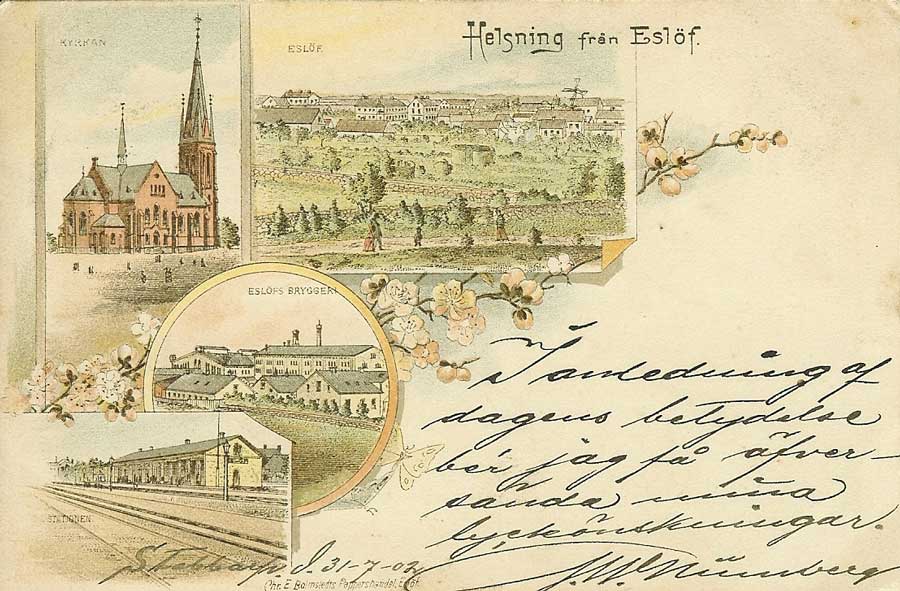 Helsning från Eslöf.
KYRKAN
ESLÖF.
ESLÖFS BRYGGERI
STATIONEN.
I anledning af
dagens betydelse
ber jag få öfver-
sända mina
lyckönskningar.
d. 31-7-02
Nürnberg
Chr. E. Bolmstedts Pappershandel, Eslöf.